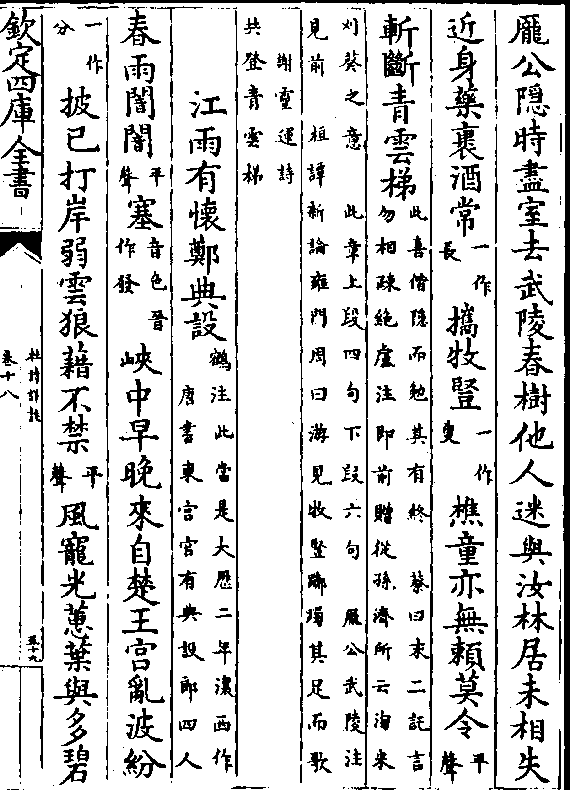 龐公隱時盡室去武陵春樹他人迷與汝林居未相失
近身藥裹酒常一作長攜牧豎一作叟樵童亦無賴莫令平聲
斬斷青雲梯此喜偕隱而勉其有終 蔡曰末二託言勿相疎絶盧注即前贈從孫濟所云淘米
刈葵之意 此章上段四句下段六句 龐公武陵注
見前 桓譚新論雍門周曰游見牧豎躑躅其足而歌
謝靈運詩
共登青雲梯
江雨有懷鄭典設鶴注此當是大厯二年瀼西作唐書東宮官有典設郎四人
春雨闇闇平聲塞音色晉作發峽中早晚來自楚王宮亂波紛
一作分披已打岸弱雲狼藉不禁平聲風寵光蕙葉與多碧
欽定四庫全書
杜詩詳註
卷十八
五十九